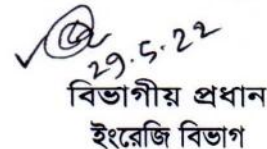 29.5.22
বিভাগীয় প্রধান
ইংরেজি বিভাগ